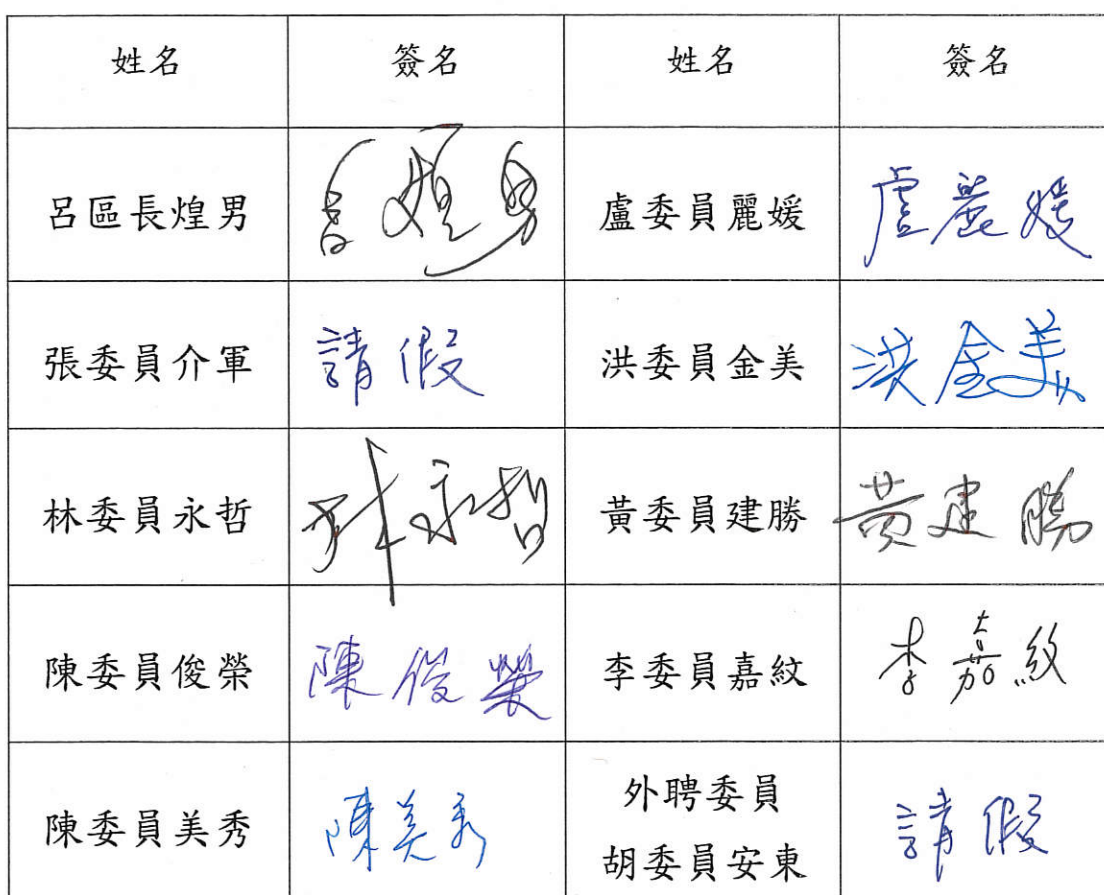 姓名 簽名 姓名 簽名
呂區長煌男 呂煌男 盧委員麗媛 盧麗媛
張委員介軍 請假 洪委員金美 洪金美
林委員永哲 林永哲 黃委員建勝 黃建勝
陳委員俊榮 陳俊榮 李委員嘉紋 李嘉紋
陳委員美秀 陳美秀 外聘委員
胡委員安東 請假